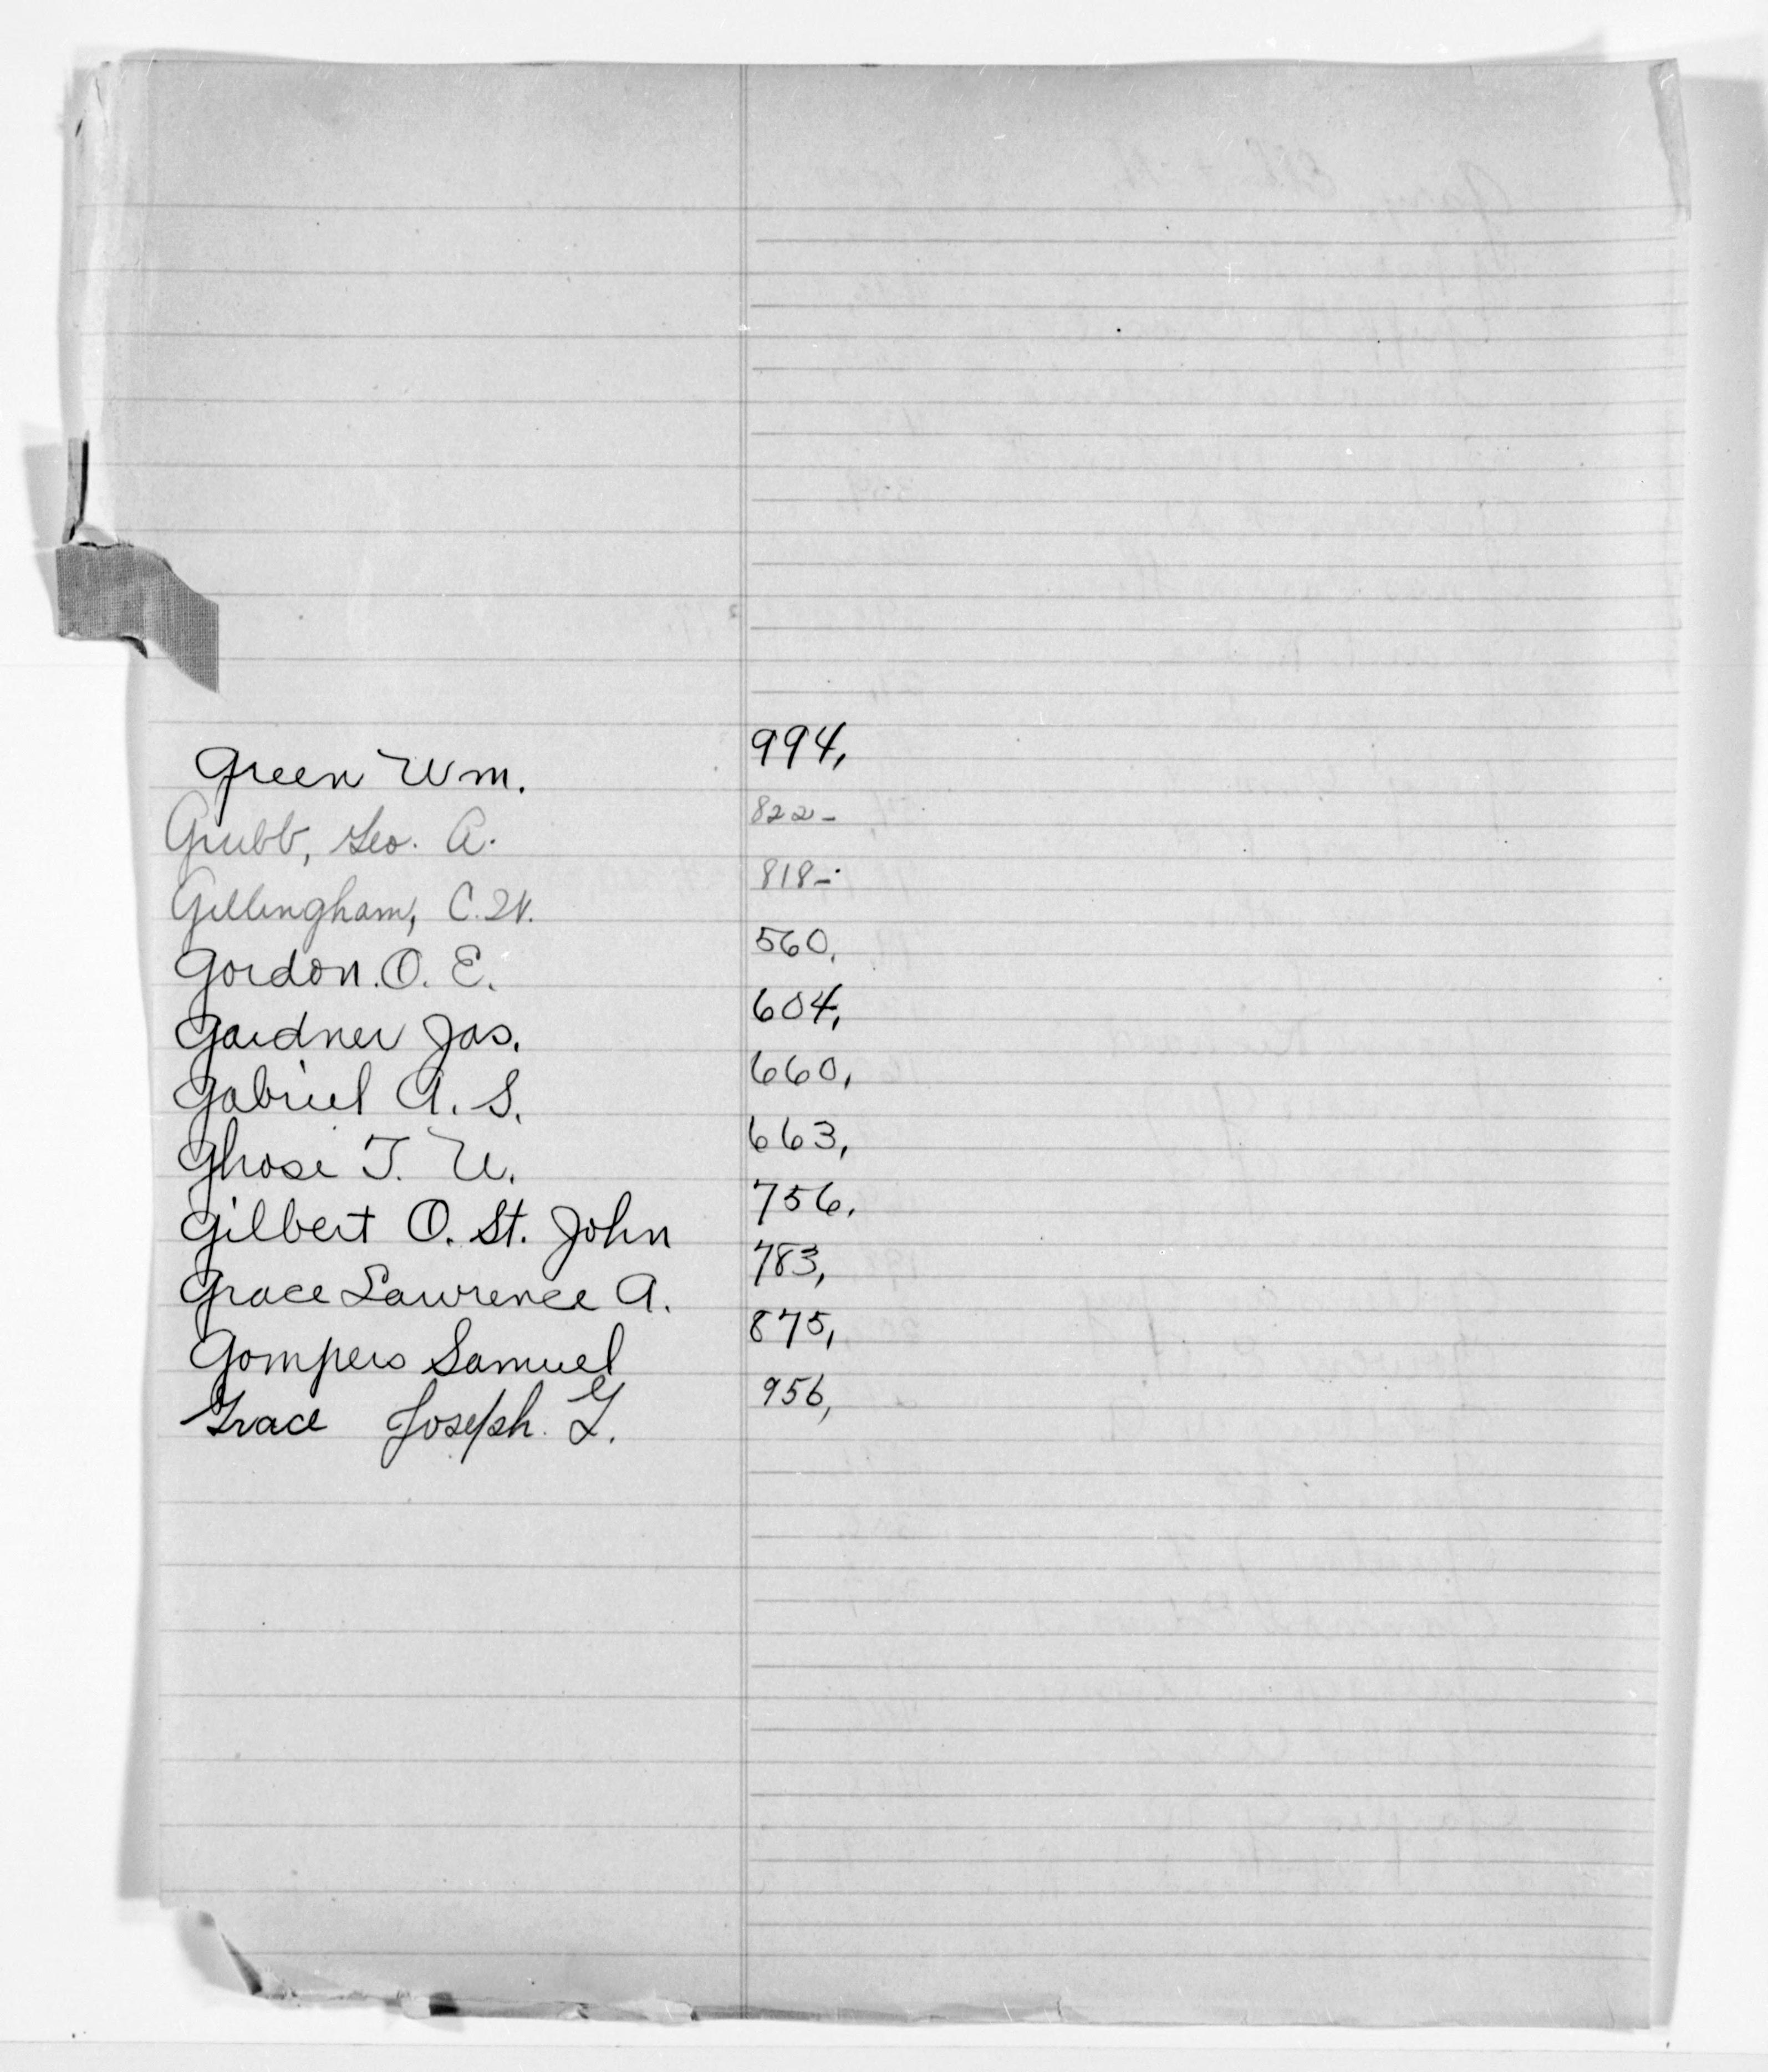 Green Wm. 994,
Grubb, Geo. A. 822-
Gillingham, C.W. 818-
Gordon. O. E. 560,
Gardner Jas. 604,
Gabriel A. S. 660,
Ghose T. U. 663,
Gilbert O. St. John 756,
Grace Lawrence A. 783,
Gompers Samuel 875,
Grace Joseph. G. 956,